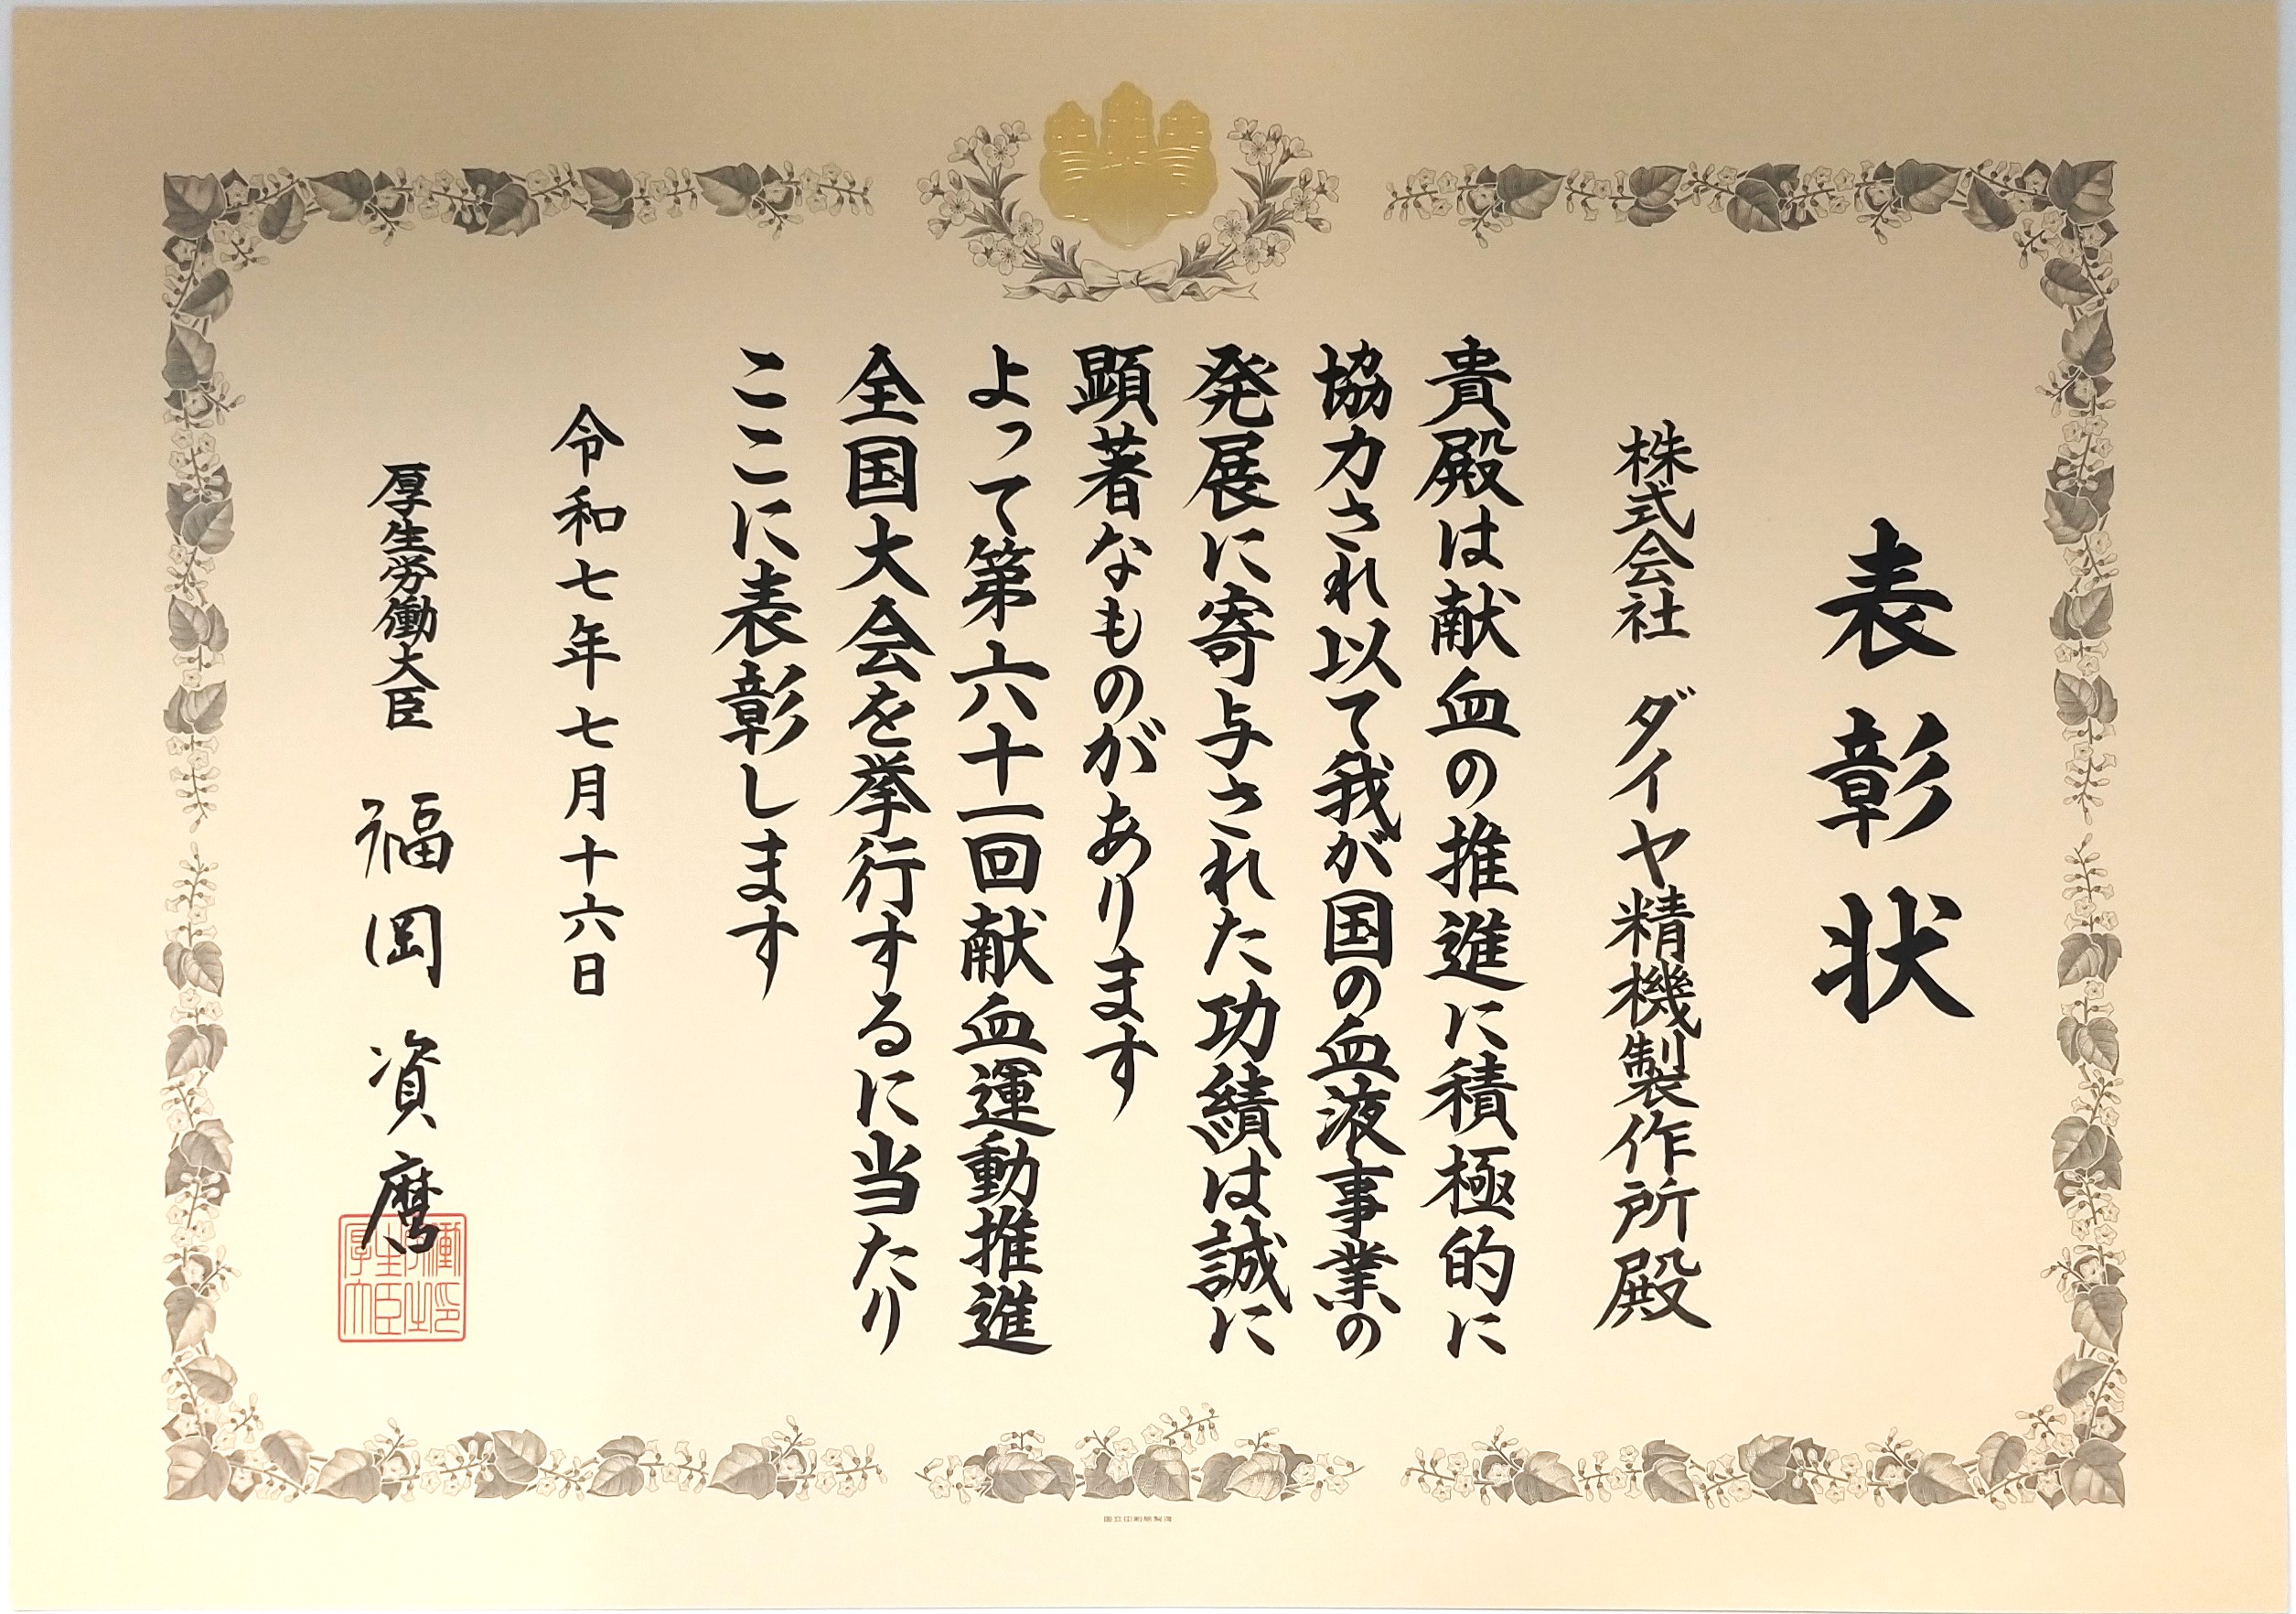 表彰状
株式会社 ダイヤ精機製作所殿
貴殿は献血の推進に積極的に
協力され以て我が国の血液事業の
発展に寄与された功績は誠に
顕著なものがあります
よって第六十一回献血運動推進
全国大会を挙行するに当たり
ここに表彰します
令和七年七月十六日
厚生労働大臣 福岡資麿